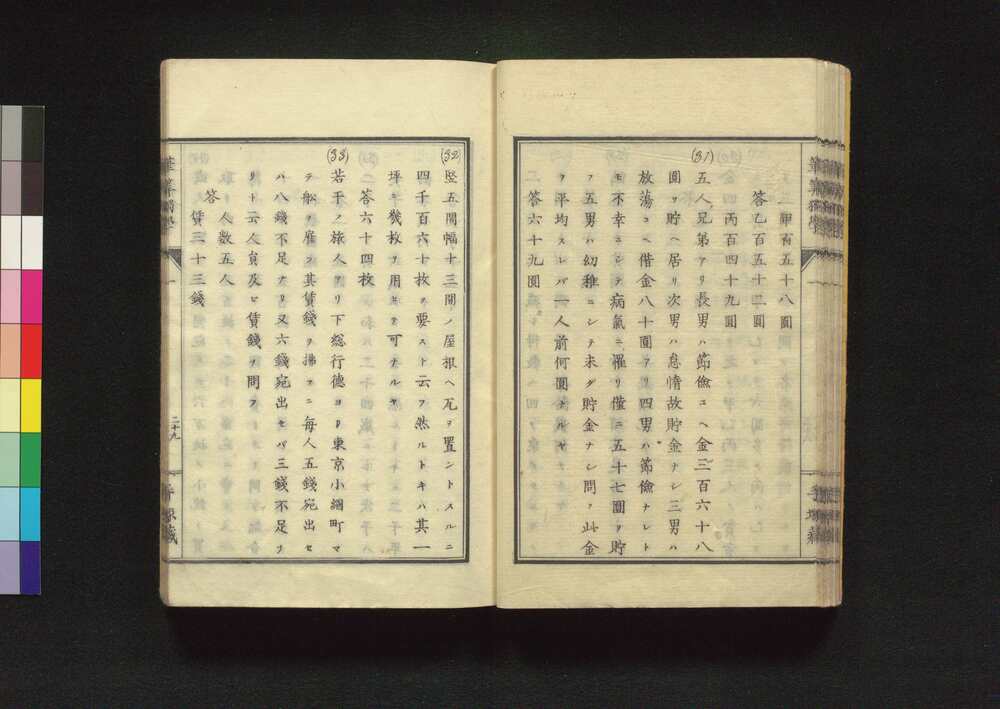 甲百五十八圓
答乙百五十二圓
丙百四十九圓
(31)
五人兄弟アリ長男ハ節儉ユヘ金三百六十八
圓ヲ貯ヘ居リ次男ハ怠惰故貯金ナシ三男ハ
放蕩ユヘ借金八十圓アリ四男ハ節儉ナレト
モ不幸ニシテ病氣ニ罹リ僅ニ五十七圓ヲ貯
フ五男ハ幼稚ニシテ未ダ貯金ナシ問フ此金
ヲ平均スレバ一人前何圓ナルヤ
答六十九圓
(32)
竪五間幅十三間ノ屋根ヘ瓦ヲ置ントスルニ
四千百六十枚ヲ要スト云フ然ルトキハ其一
坪ニ幾枚ヲ用ヰテ可ナルヤ
答六十四枚
(33)
若干ノ旅人アリ下総行德ヨリ東京小網町マ
テ船ヲ雇フ其賃錢ヲ拂フニ毎人五錢宛出セ
ハ八錢不足ナリ又六錢宛出セバ三錢不足ナ
リト云人員及ビ賃錢ヲ問フ
答
人数五人
賃三十三錢
二十九